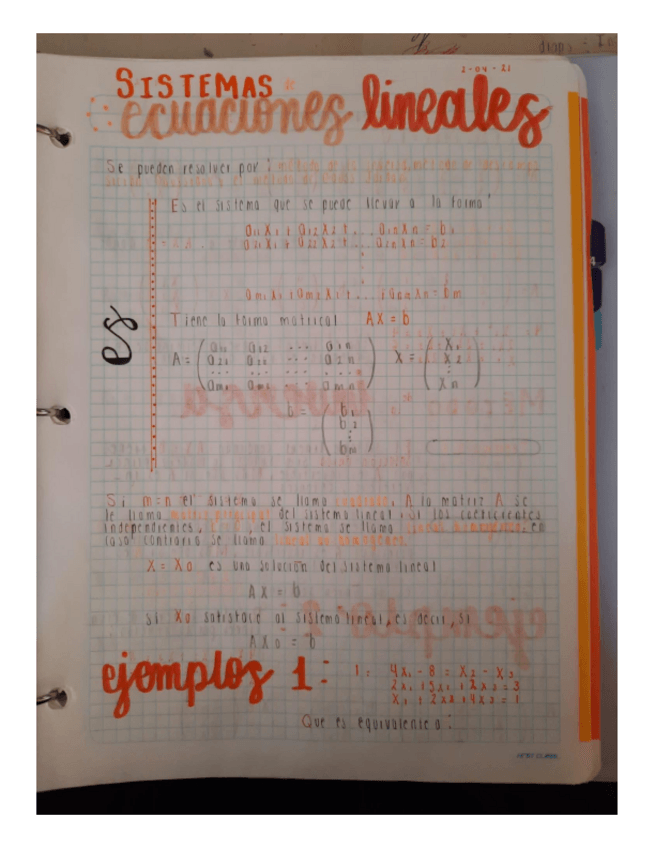 2-04-21
SISTEMAS
ecuaciones lineales
Se pueden resolver por: método de la
es
Es el sistema que se puede llevar a la forma:
a11 x1 + a12 x2 + ... a1n xn = b1
a21 x1 + a22 x2 + ... xn = b2
am1 x1 + am2 + ... + amn xn = bm
Tiene la forma matricial AX = b
A = ( a11 a12 ... a1n ) X = ( x1 )
( a21 a22 ... a2n ) ( x2 )
( ... ... ... ... ) ( ⋮ )
( am1 am2 ... amn ) ( xn )
b = ( b1 )
( b2 )
( ⋮ )
( bm )
Si m=n el sistema se llama cuadrado. A la matriz A se
le llama matriz principal del sistema lineal. Si los coeficientes
independientes, el sistema se llama en
caso contrario se llama lineal no homogéneo.
X = X0 es una solución del sistema lineal
AX = b
si X0 satisface al sistema lineal, es decir, si
AX0 = b
ejemplos 1:
1: 4x1 - 8 = x2 - x3
2x1 + 5x2 + 2x3 = 3
x1 + 2x2 + 4x3 = 1
Que es equivalente a: